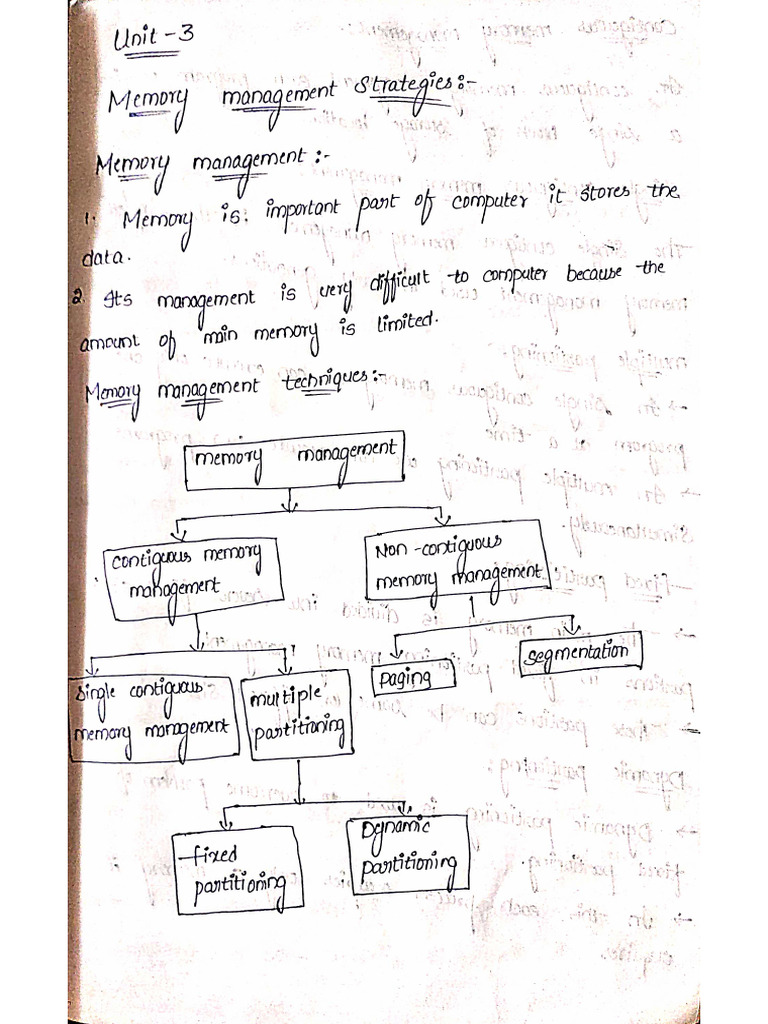 Unit - 3
Memory management Strategies:-
Memory management:-
1. Memory is. important part of computer it stores the
data.
2. Its management is very difficult to computer because the
amount of main memory is limited.
Memory management techniques:-
memory management
contiguous memory
management
Non-contiguous
memory management
single contiguous
memory management
multiple
partitioning
paging
segmentation
fixed
partitioning
Dynamic
partitioning